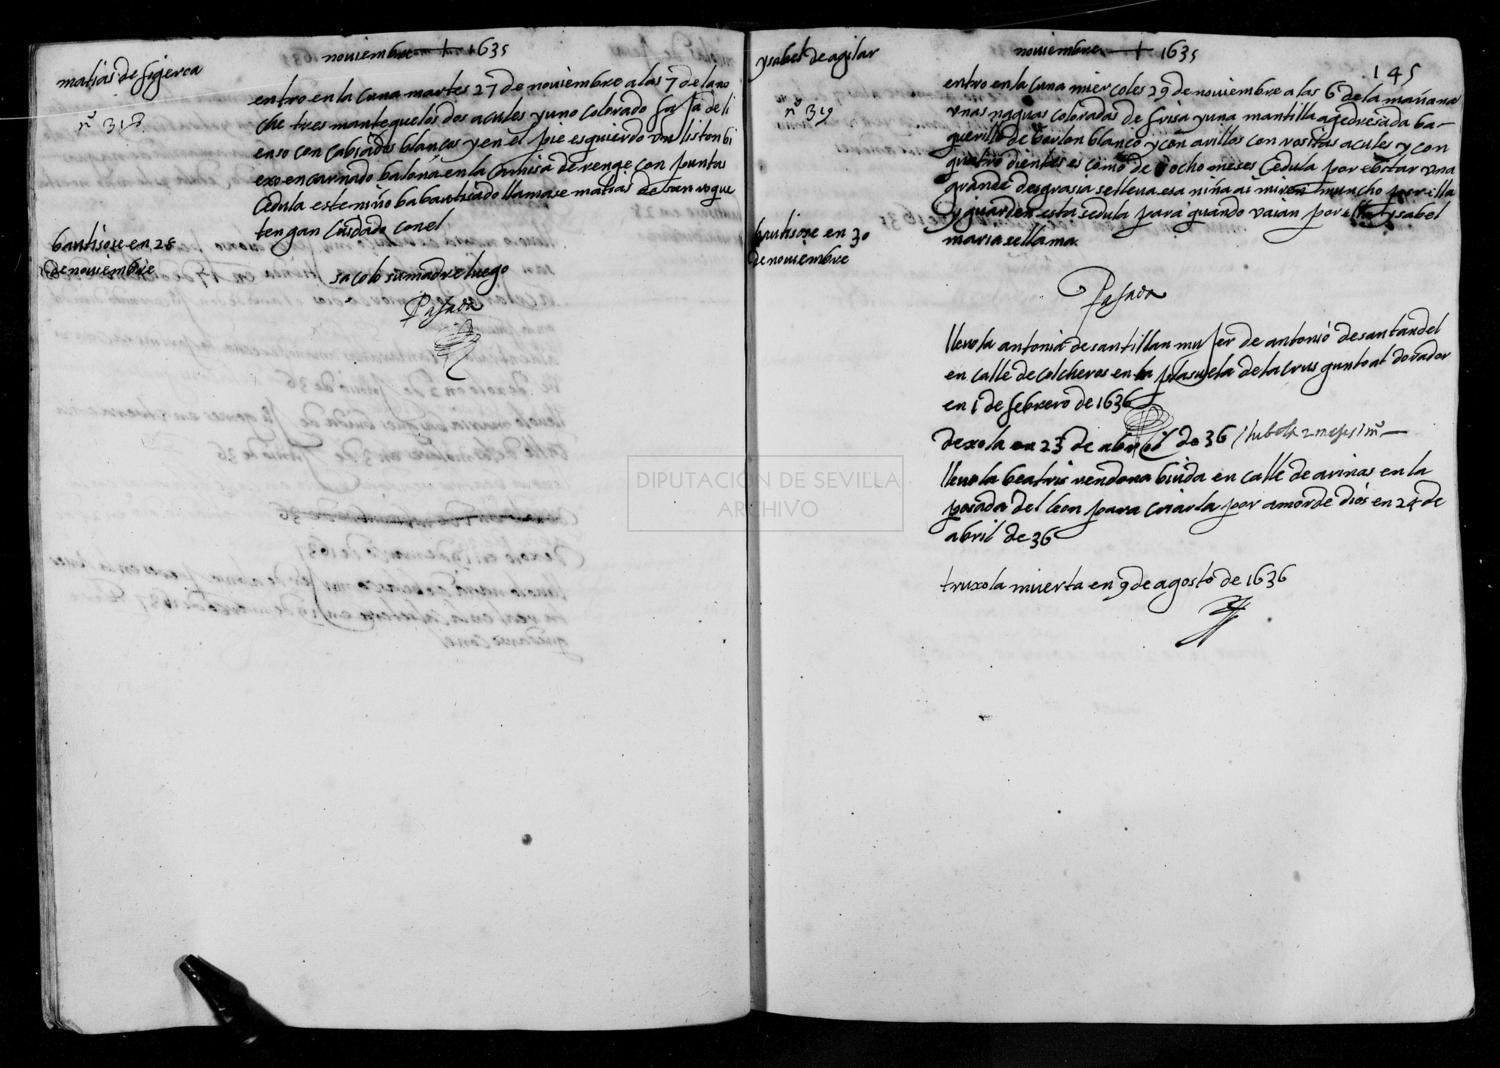 noviembre + 1635
matias de figeroa
nº 318
entro en la cuna martes 27 de noviembre a las 7 de la no
che tres mantequelos dos açules y uno colorado faja de li
enso con cabsados blancos y en el pie esquierdo un liston bi
exo encarnado balona en la camisa de renge con puntas
Cedula este niño ba bautisado llamase matias de san roque
tengan cuidado con el
bautisose en 28
de noviembre
sacolo su madre luego
Pasada
ysabel de agilar
noviembre + 1635
145
nº 319
entro en la cuna miercoles 29 de noviembre a las 6 de la mañana
unas naguas coloradas de frisa y una mantilla agedresada ba-
querillo de borlon blanco y con avillos con rositas açules y con
quatro dientes es como de ocho meses Cedula por estar una
grande desgrasia se lleva esa niña ai miren muncho por illa
y guarden esta sedula para quando vaian por ella ysabel
maria se llama
bautisose en 30
de noviembre
Pasada
llevola antonia de santillan mujer de antonio de santandel
en calle de colcheros en la plasuela de la crus gunto al dorador
en 1 de febrero de 1636
dexola en 23 de abril de 36 / hubola 2 meses
llevola beatris rendona biuda en calle de arinas en la
posada del leon para criarla por amor de dios en 24 de
abril de 36
truxola muerta en 9 de agosto de 1636
DIPUTACIÓN DE SEVILLA
ARCHIVO